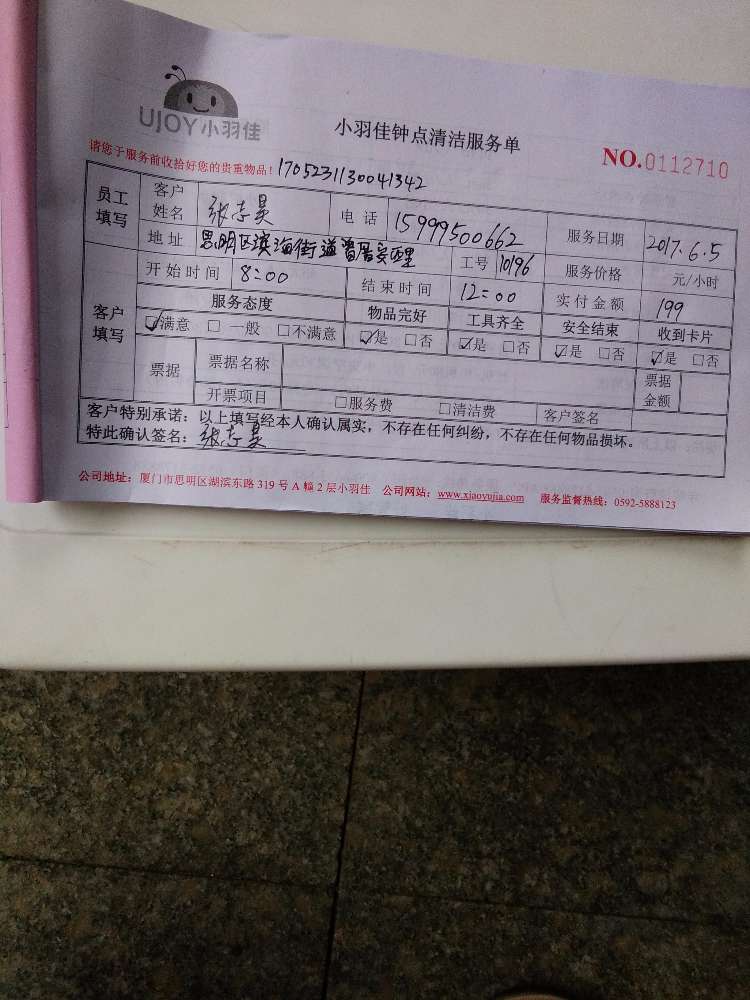 UJOY小羽佳
小羽佳钟点清洁服务单
NO.0112710
请您于服务前收拾好您的贵重物品！ 1705231130041342
员工填写 客户姓名 张志昊 电话 15999500662 服务日期 2017.6.5
地址 思明区滨海街道曾厝安西里 工号 10196 服务价格 元/小时
客户填写 开始时间 8:00 结束时间 12:00 实付金额 199
服务态度 物品完好 工具齐全 安全结束 收到卡片
☑满意 □一般 □不满意 ☑是 □否 ☑是 □否 ☑是 □否 ☑是 □否
票据 票据名称 票据金额
开票项目 □服务费 □清洁费 客户签名
客户特别承诺：以上填写经本人确认属实，不存在任何纠纷，不存在任何物品损坏。
特此确认签名：张志昊
公司地址：厦门市思明区湖滨东路 319 号 A 幢 2 层小羽佳 公司网站：www.xiaoyujia.com 服务监督热线：0592-5888123